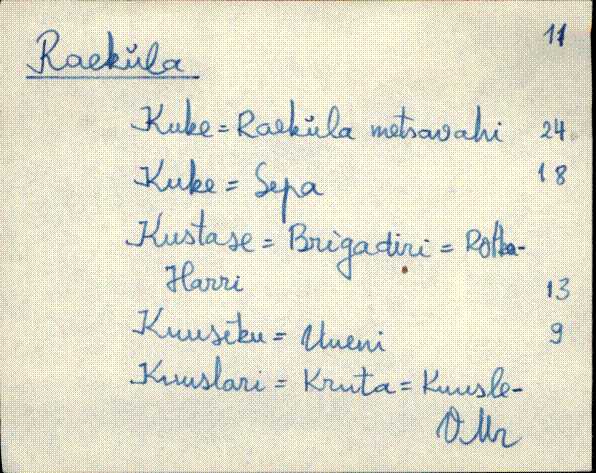 11
Raeküla
Kuke = Raeküla metsavahi 24
Kuke = Sepa 18
Kustase = Brigadiri = Rotka-
Harri 13
Kuusiku = Uueni 9
Kuuslari = Kruta = Kuusle-